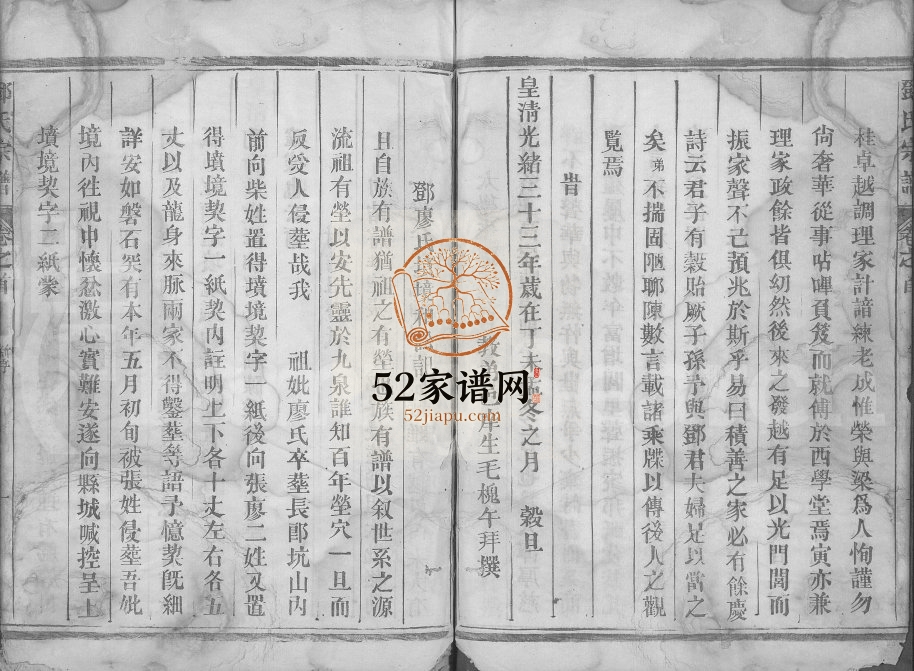 桂卓越調理家計諳練老成惟榮與梁爲人恂謹勿
尙奢華從事咕嗶負笈而就傳於西學堂焉寅亦兼
理家政餘皆俱幼然後來之發越有足以光門閭而
振家聲不已預兆於斯乎易曰積善之家必有餘慶
詩云君子有榖貽厥子孫予與鄧君夫婦足以當之
矣弟不揣固陋聊陳數言載諸乘牒以傳後人之觀
覽焉
旹
皇清光緒三十三年歲在丁未孟冬之月 榖旦
庠生毛槐午拜撰
鄧廖氏墳境
且自族有譜猶祖之有塋族有譜以叙世系之源
流祖有塋以安先靈於九泉誰知百年塋穴一旦而
反受人侵塟哉我 祖妣廖氏卒塟長郎坑山內
前向柴姓置得墳境契字一紙後向張廖二姓又置
得墳境契字一紙契內註明上下各十丈左右各五
丈以及龍身來脉兩家不得鑿塟等語予憶契旣細
詳安如磐石突有本年五月初旬被張姓侵塟吾妣
境內徃視中懷忿激心實難安遂向縣城喊控呈上
墳境契字二紙蒙
鄧氏宗譜
卷之首
52家谱网
52jiapu.com